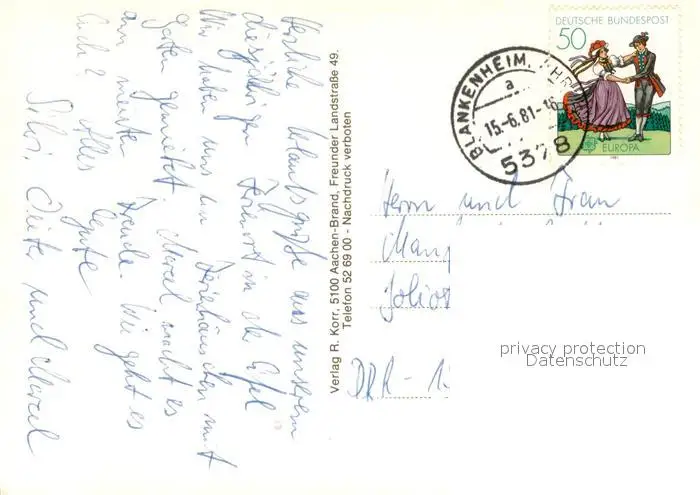 Herzliche Urlaubsgrüße aus unserem
diesjährigen Ferienort in der Eifel
Wir haben uns ein Ferienhäuschen mit
Garten gemietet. Marcel macht es
am meisten Freude. Wie geht es
Euch? Alles Gute
Silvi, Dieter und Marcel
Verlag R. Korr, 5100 Aachen-Brand, Freunder Landstraße 49.
Telefon 52 69 00 - Nachdruck verboten
DEUTSCHE BUNDESPOST
50
EUROPA
1981
BLANKENHEIM, AHR
a
15.-6.81-16
5378
Herrn und Frau
DDR - 1
privacy protection
Datenschutz